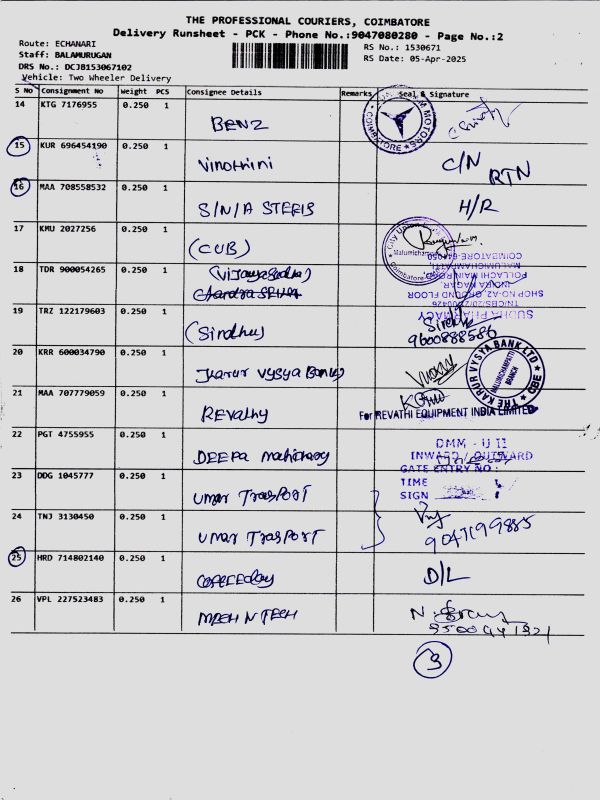 THE PROFESSIONAL COURIERS, COIMBATORE
Delivery Runsheet - PCK - Phone No.:9047080280 - Page No.:2
Route: ECHANARI
RS No.: 1530671
Staff: BALAMURUGAN
RS Date: 05-Apr-2025
DRS No.: DCJB153067102
Vehicle: Two Wheeler Delivery
S No Consignment No Weight PCS Consignee Details Remarks Seal & Signature
14 KTG 7176955 0.250 1 BENZ
MOTORS
COIMBATORE
15 KUR 696454190 0.250 1 Vinothini C/N RTN
16 MAA 708558532 0.250 1 S/N/A STERIS H/R
17 KMU 2027256 0.250 1 (CUB)
City Union
Malumichampatti
Coimbatore
18 TDR 900054265 0.250 1
SUDHA PHARMACY
SHOP NO-A2, GROUND FLOOR
INDIRA NAGAR,
POLLACHI MAIN ROAD,
MALUMICHAMPATTI,
COIMBATORE-641050
19 TRZ 122179603 0.250 1 (Sindhu)
9600888586
20 KRR 600034790 0.250 1 Karur Vysya Bank
THE KARUR VYSYA BANK LTD
MALUMICHAMPATTI
BRANCH
CBE
21 MAA 707779059 0.250 1 Revathy
For REVATHI EQUIPMENT INDIA LIMITED
22 PGT 4755955 0.250 1 DEEPA
DMM - U II
INWARD / OUTWARD
GATE ENTRY NO :
23 DDG 1045777 0.250 1 Umar TrasPORT
TIME
SIGN
24 TNJ 3130450 0.250 1 Umar TrasPORT
9047199885
25 HRD 714802140 0.250 1 D/L
26 VPL 227523483 0.250 1 MECH N TECH
3